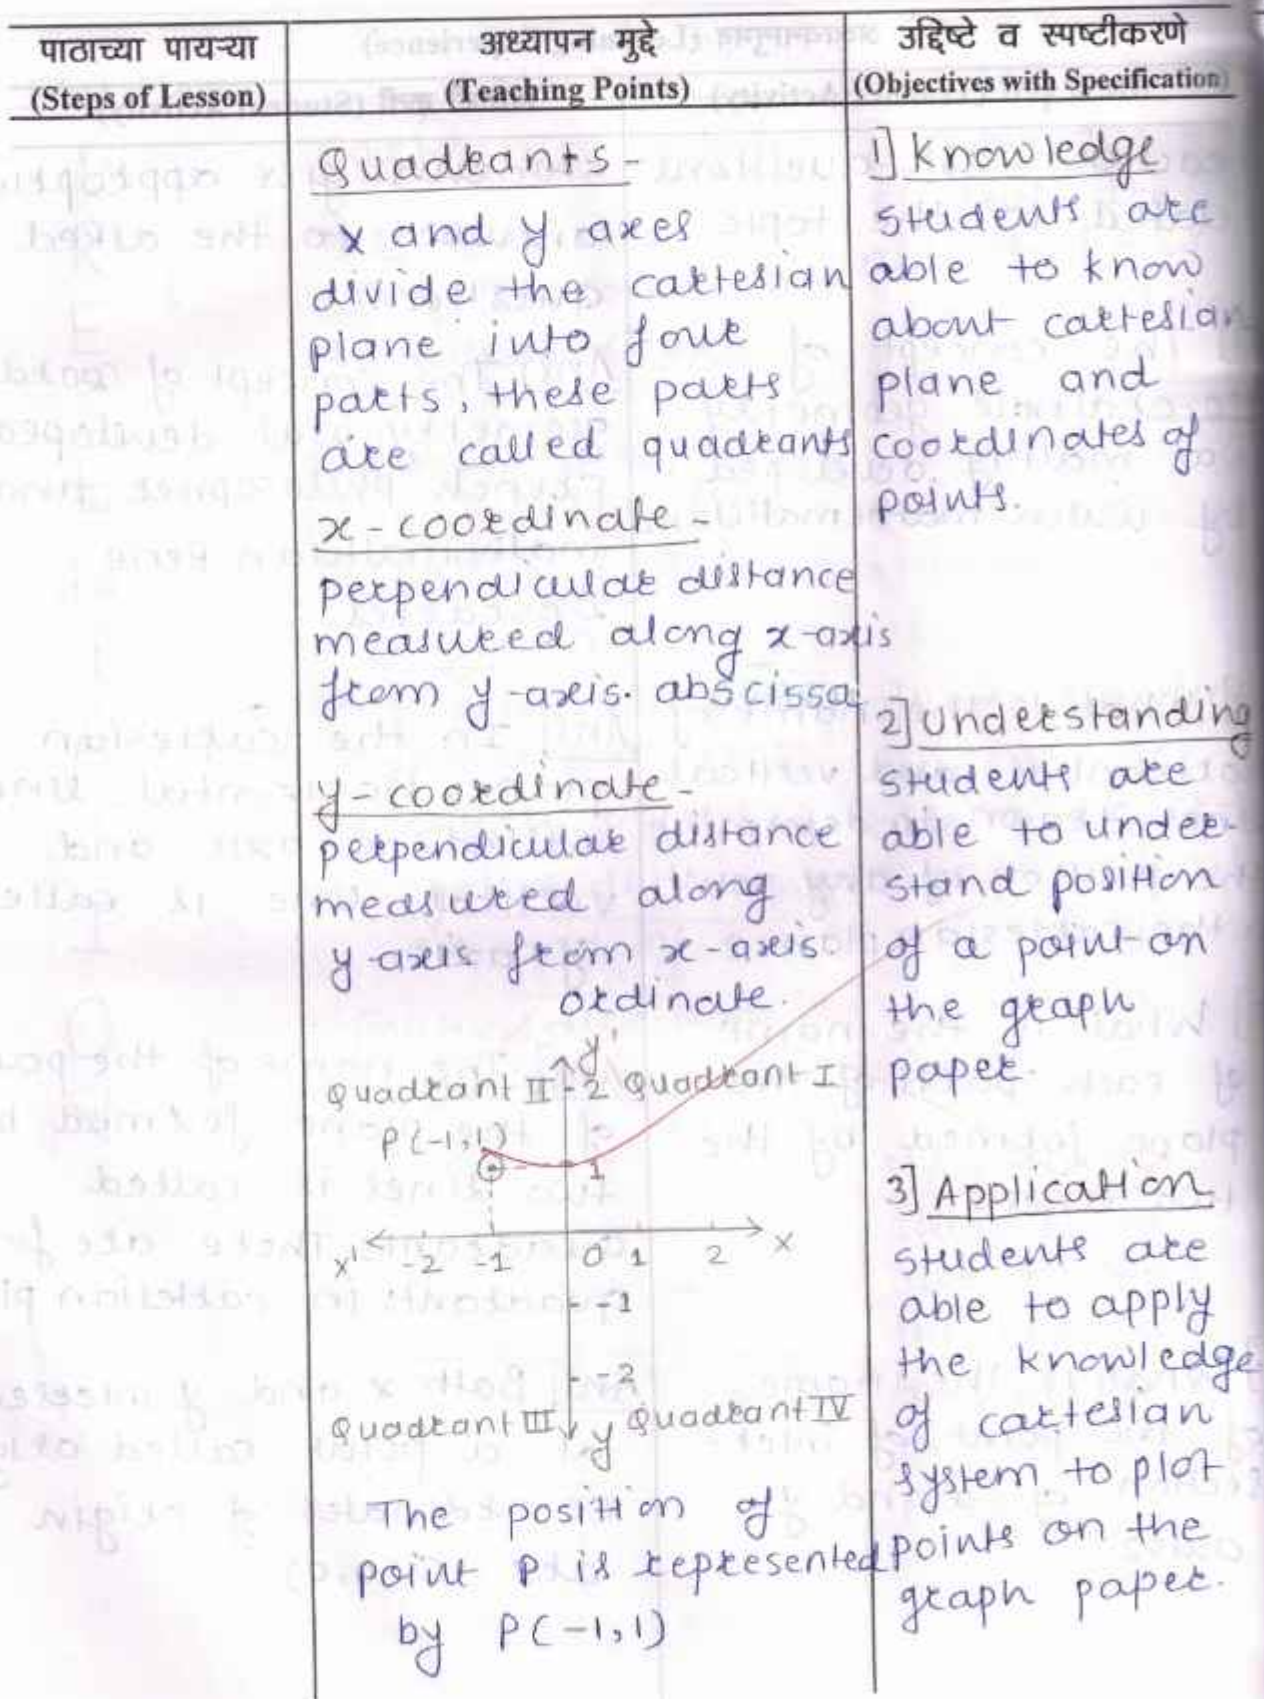 पाठाच्या पायऱ्या
(Steps of Lesson)
अध्यापन मुद्दे
(Teaching Points)
उद्दिष्टे व स्पष्टीकरणे
(Objectives with Specification)
Quadrants -
x and y axes
divide the cartesian
plane into four
parts, these parts
are called quadrants
x - coordinate -
perpendicular distance
measured along x-axis
from y-axis. abscissa
y - coordinate -
perpendicular distance
measured along
y-axis from x-axis.
ordinate.
Quadrant II
y'
2
Quadrant I
P(-1,1)
1
x' -2 -1 0 1 2 X
-1
-2
Quadrant III
y
Quadrant IV
The position of
point P is represented
by P(-1,1)
1] Knowledge
students are
able to know
about cartesian
plane and
coordinates of
points.
2] Understanding
students are
able to under-
stand position
of a point on
the graph
paper.
3] Application
students are
able to apply
the knowledge
of cartesian
system to plot
points on the
graph paper.